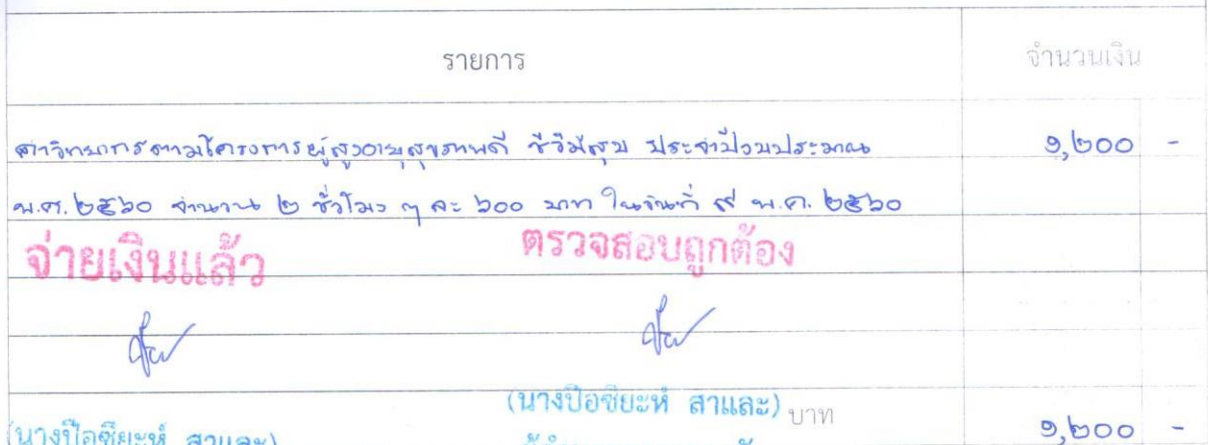 รายการ จำนวนเงิน
ค่าวิทยากรตามโครงการผู้สูงอายุสุขภาพดี ชีวีมีสุข ประจำปีงบประมาณ ๑,๒๐๐ -
พ.ศ. ๒๕๖๐ จำนวน ๒ ชั่วโมง ๆ ละ ๖๐๐ บาท ในวันที่ ๙ พ.ค. ๒๕๖๐
จ่ายเงินแล้ว ตรวจสอบถูกต้อง
(นางปือซิยะห์ สาและ) บาท ๑,๒๐๐ -
(นางปือซิยะห์ สาและ)